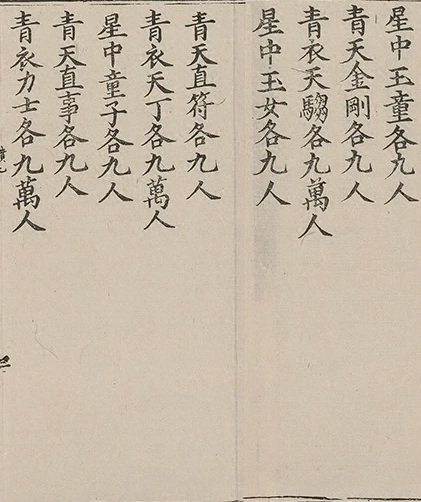 星中玉童各九人
青天金剛各九人
青衣天騶各九萬人
星中玉女各九人
青天直符各九人
青衣天丁各九萬人
星中童子各九人
青天直事各九人
青衣力士各九萬人